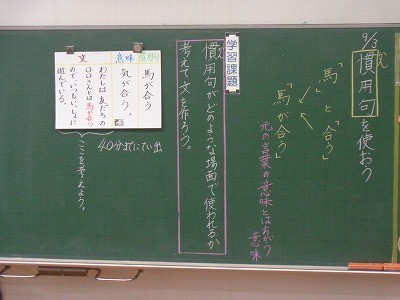 9/3
慣用句を使おう
かん
「馬」と「合う」
「馬が合う」
元の言葉の意味とはちがう
意味
学習課題
慣用句がどのような場面で使われるか
かん
考えて文を作ろう。
慣用句
馬が合う
意味
気が合う。
文
わたしは友だちの
〇〇さんとは馬が合う
ので、いつもいっしょに
遊んでいる。
40分までにてい出
ここを考えよう。